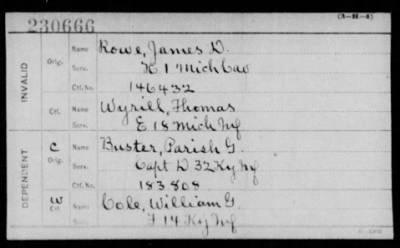 230666
(3-H-5)
INVALID
Orig.
Name Rowe, James D.
Serv. K 1 Mich Cav
Ctf. No. 146432
Ctf.
Name Wyrill, Thomas
E 18 Mich Inf
DEPENDENT
C
Orig.
Name Buster, Parish G.
Serv. Capt D 32 Ky Inf
Ctf. No. 183808
W
Ctf.
Name Cole, William G.
F 14 Ky Inf